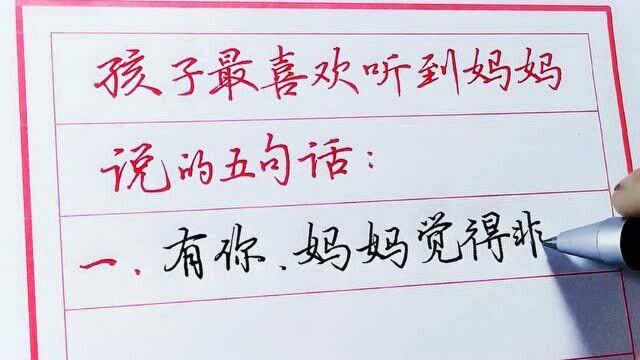 孩子最喜欢听到妈妈
说的五句话：
一、有你、妈妈觉得非